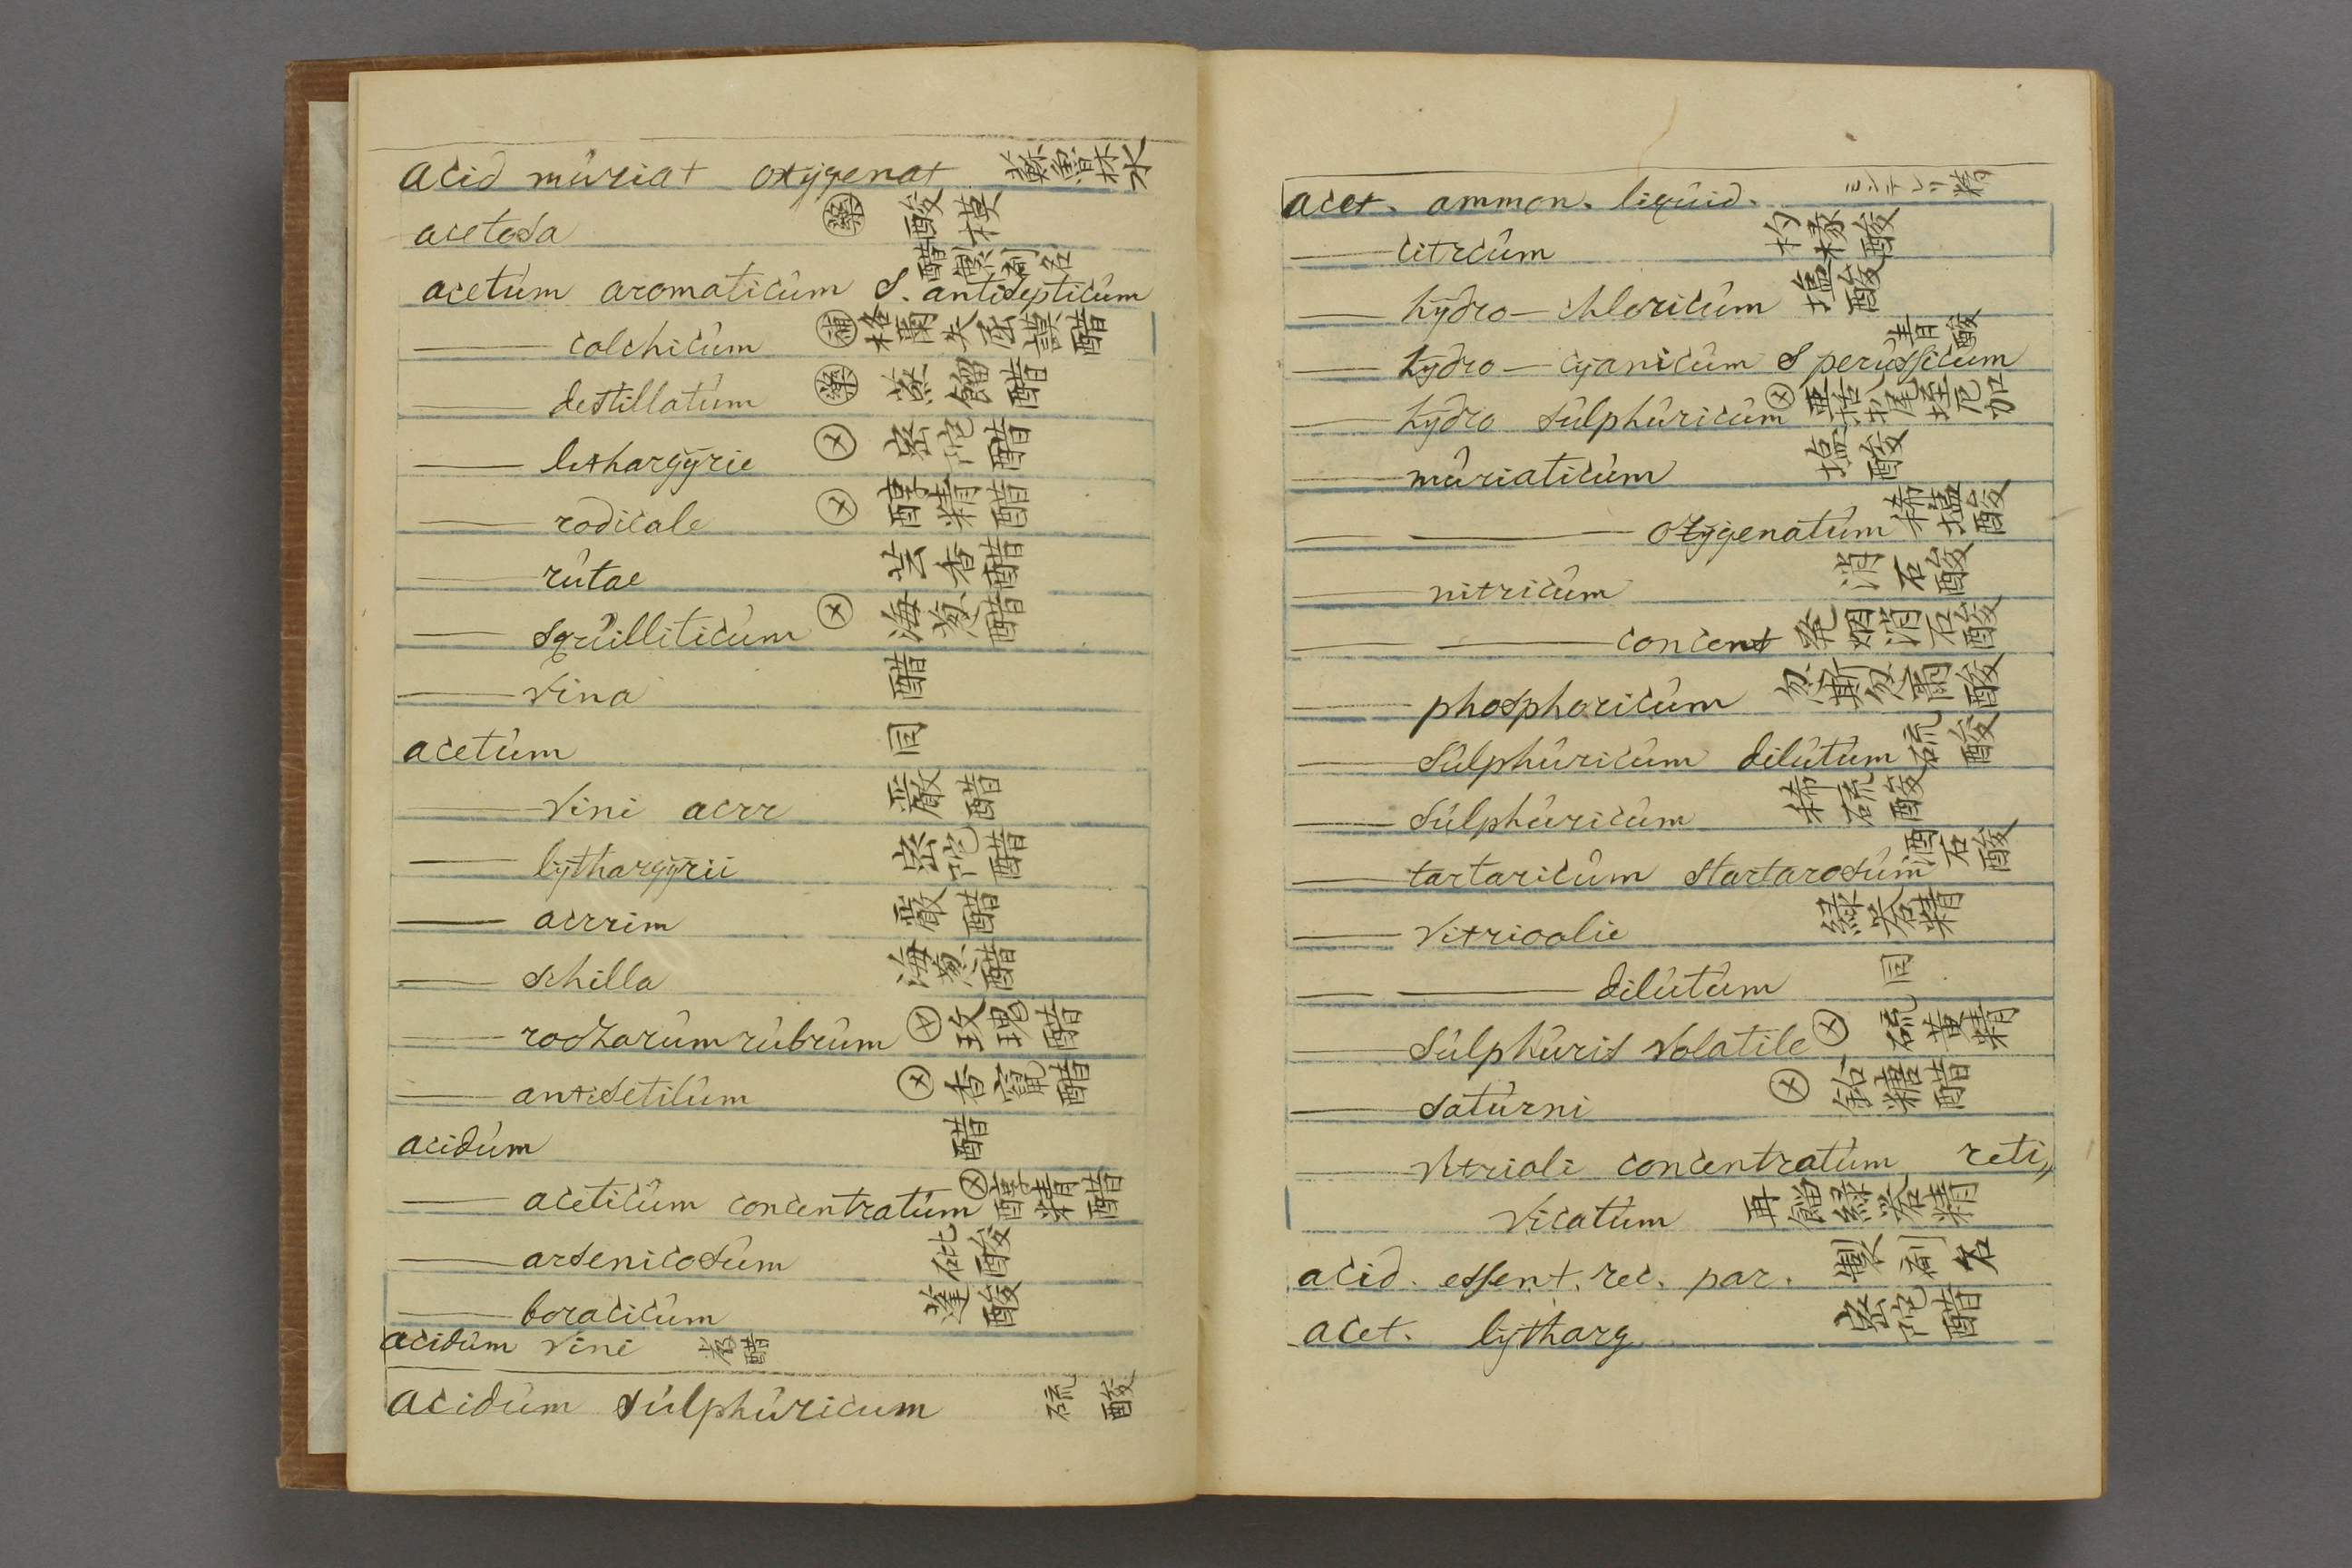 acid mûriat oxÿgenat 蘇魯林水
acetosa 藥 酸模
acetûm aromaticûm S. antisepticûm 醋製剤名
—— colchicûm 補 格爾失屈謨醋
—— destillatûm 藥 蒸餾醋
—— lethargÿrie 密陀醋
—— rodicale 醇精醋
—— rûtae 芸香醋
—— squilliticûm 海葱醋
—— vina 醋
acetûm 同
—— vini acrr 厳醋
—— lÿthargÿrii 密陀醋
—— acrrim 厳醋
—— schilla 海葱醋
—— rodzarûm rûbrûm 玫瑰醋
—— antisetilûm 香竄醋
acidûm 醋
—— aceticûm concentratûm 醇精醋
—— arsenicosûm 砒酸
—— boracicûm 蓬酸
acidûm vini 醋
acidûm sûlphûricum 硫酸
acet. ammon. liquid. 精
—— citrcûm 枸櫞酸
—— hÿdro-chloricûm 塩酸
—— hÿdro-cyanicûm S perussicum 青酸
—— hÿdro sûlphûricûm
—— mûriaticûm 塩酸
—— —— oxÿgenatûm 稀塩酸
—— nitricûm 消石酸
—— —— concent 発烟消石酸
—— phosphoricûm 忽斯忽爾酸
—— sûlphûricûm dilûtûm 硫酸
—— sûlphûricûm 稀硫酸
—— tartaricûm Startarosûm 酒石酸
—— vitrioolie 緑礬精
—— —— dilûtûm 同
—— sûlphûris volatile 硫黄精
—— satûrni 鉛糖醋
—— vitrioli concentratûm reti,,
vicatûm 再餾緑礬精
acid. essent. rec. par. 製剤名
acet. lÿtharg 密陀醋